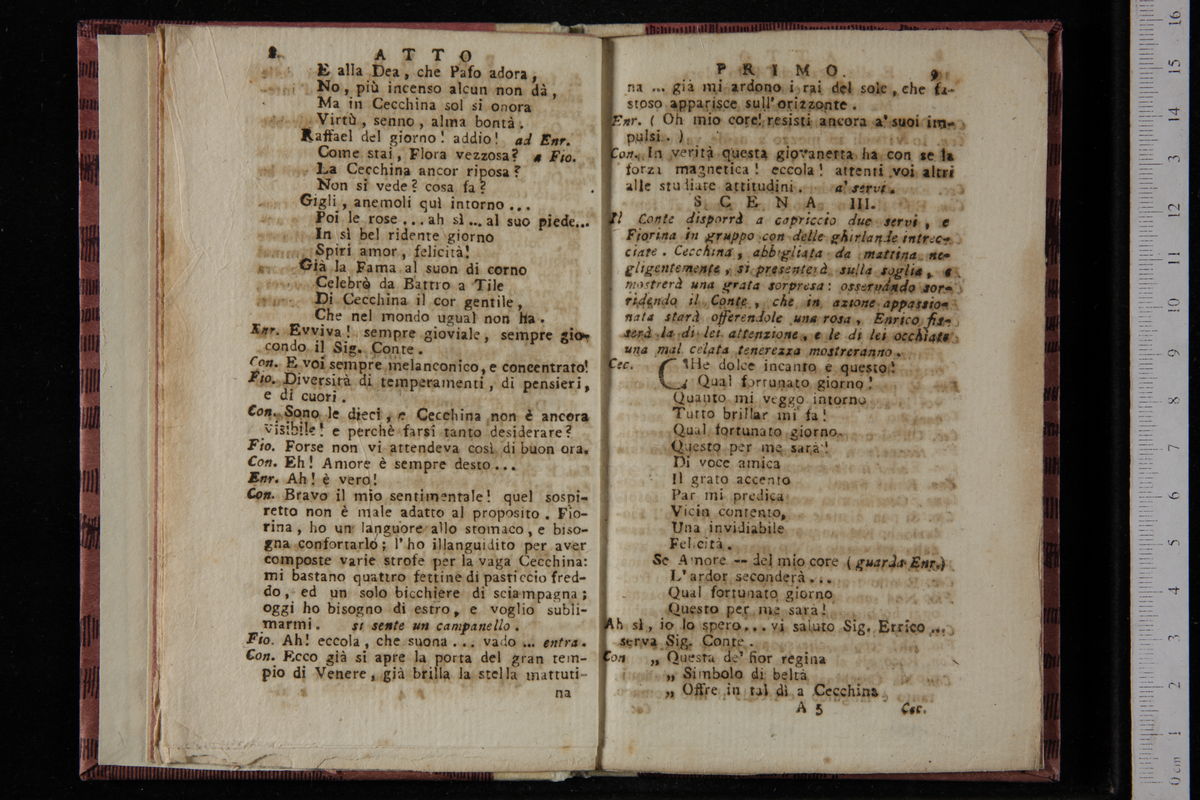 8 ATTO
E alla Dea, che Pafo adora,
No, più incenso alcun non dà,
Ma in Cecchina sol si onora
Virtù, senno, alma bontà.
Raffael del giorno! addio! ad Enr.
Come stai, Flora vezzosa? a Fio.
La Cecchina ancor riposa?
Non si vede? cosa fa?
Gigli, anemoli quì intorno...
Poi le rose... ah sì... al suo piede...
In sì bel ridente giorno
Spiri amor, felicità!
Già la Fama al suon di corno
Celebrò da Battro a Tile
Di Cecchina il cor gentile,
Che nel mondo ugual non ha.
Enr. Evviva! sempre gioviale, sempre gio-
condo il Sig. Conte.
Con. E voi sempre melanconico, e concentrato!
Fio. Diversità di temperamenti, di pensieri,
e di cuori.
Con. Sono le dieci, e Cecchina non è ancora
visibile! e perchè farsi tanto desiderare?
Fio. Forse non vi attendeva così di buon ora.
Con. Eh! Amore è sempre desto...
Enr. Ah! è vero!
Con. Bravo il mio sentimentale! quel sospi-
retto non è male adatto al proposito. Fio-
rina, ho un languore allo stomaco, e biso-
gna confortarlo; l'ho illanguidito per aver
composte varie strofe per la vaga Cecchina:
mi bastano quattro fettine di pasticcio fred-
do, ed un solo bicchiere di sciampagna;
oggi ho bisogno di estro, e voglio subli-
marmi. si sente un campanello.
Fio. Ah! eccola, che suona... vado... entra.
Con. Ecco già si apre la porta del gran tem-
pio di Venere, già brilla la stella mattuti-
na
PRIMO. 9
na... già mi ardono i rai del sole, che fa-
stoso apparisce sull'orizzonte.
Enr. (Oh mio core! resisti ancora a' suoi im-
pulsi.)
Con. In verità questa giovanetta ha con se la
forza magnetica! eccola! attenti voi altri
alle studiate attitudini. a' servi.
SCENA III.
Il Conte disporrà a capriccio due servi, e
Fiorina in gruppo con delle ghirlande intrec-
ciate. Cecchina, abbigliata da mattina ne-
gligentemente, si presenterà sulla soglia, e
mostrerà una grata sorpresa: osservando sor-
ridendo il Conte, che in azione appassio-
nata starà offerendole una rosa, Enrico fis-
serà la di lei attenzione, e le di lei occhiate
una mal celata tenerezza mostreranno.
Cec. CHe dolce incanto è questo!
Qual fortunato giorno!
Quanto mi veggo intorno
Tutto brillar mi fa!
Qual fortunato giorno
Questo per me sarà!
Di voce amica
Il grato accento
Par mi predica
Vicin contento,
Una invidiabile
Felicità.
Se Amore -- del mio core (guarda Enr.)
L'ardor seconderà...
Qual fortunato giorno
Questo per me sarà!
Ah sì, io lo spero... vi saluto Sig. Errico...
serva Sig. Conte.
Con „ Questa de' fior regina
„ Simbolo di beltà
„ Offre in tal dì a Cecchina
A 5 Cec.
0 cm 1 2 3 4 5 6 7 8 9 10 11 12 13 14 15 16